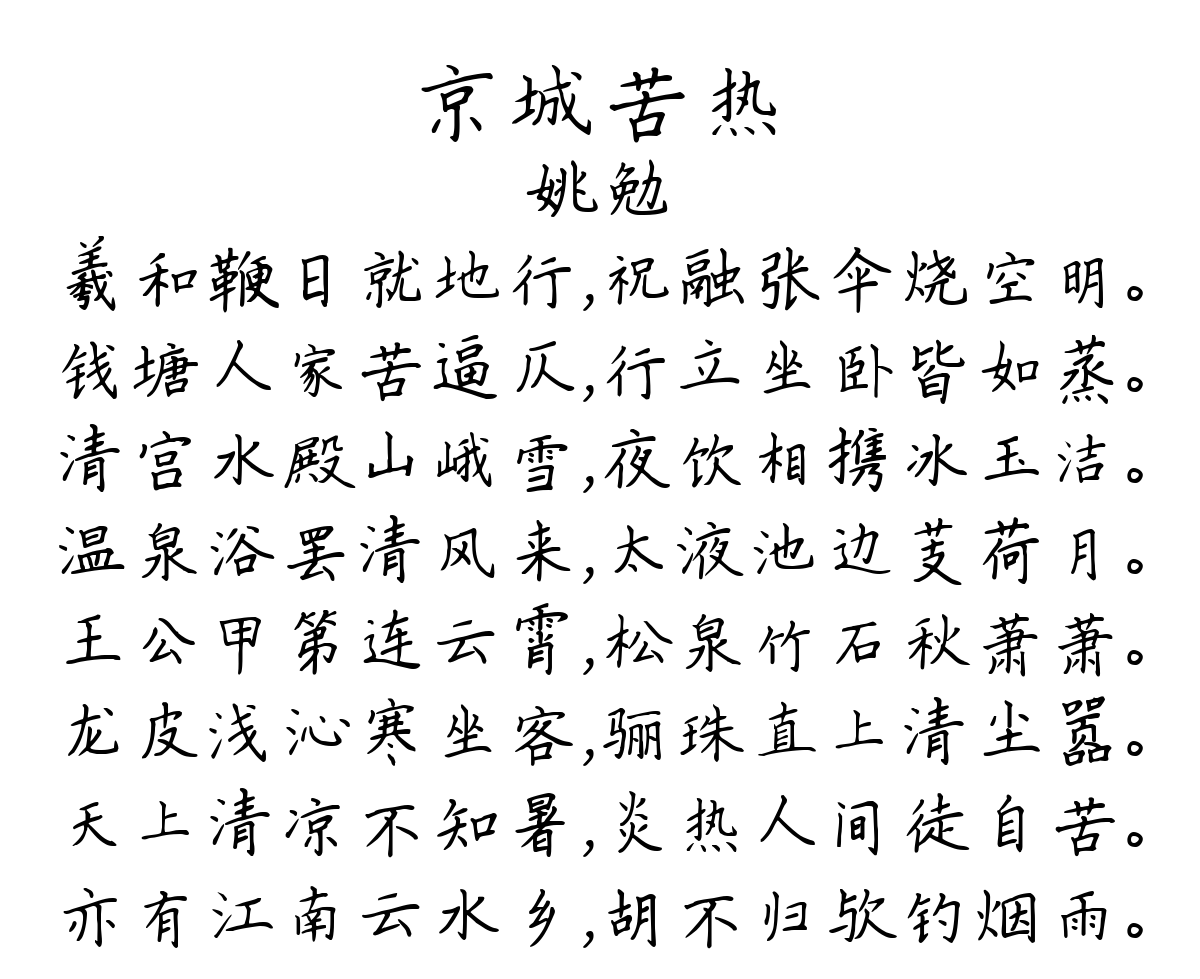 京城苦热
姚勉
羲和鞭日就地行,祝融张伞烧空明。
钱塘人家苦逼仄,行立坐卧皆如蒸。
清宫水殿山峨雪,夜饮相携冰玉洁。
温泉浴罢清风来,太液池边芰荷月。
王公甲第连云霄,松泉竹石秋萧萧。
龙皮浅沁寒坐客,骊珠直上清尘嚣。
天上清凉不知暑,炎热人间徒自苦。
亦有江南云水乡,胡不归欤钓烟雨。